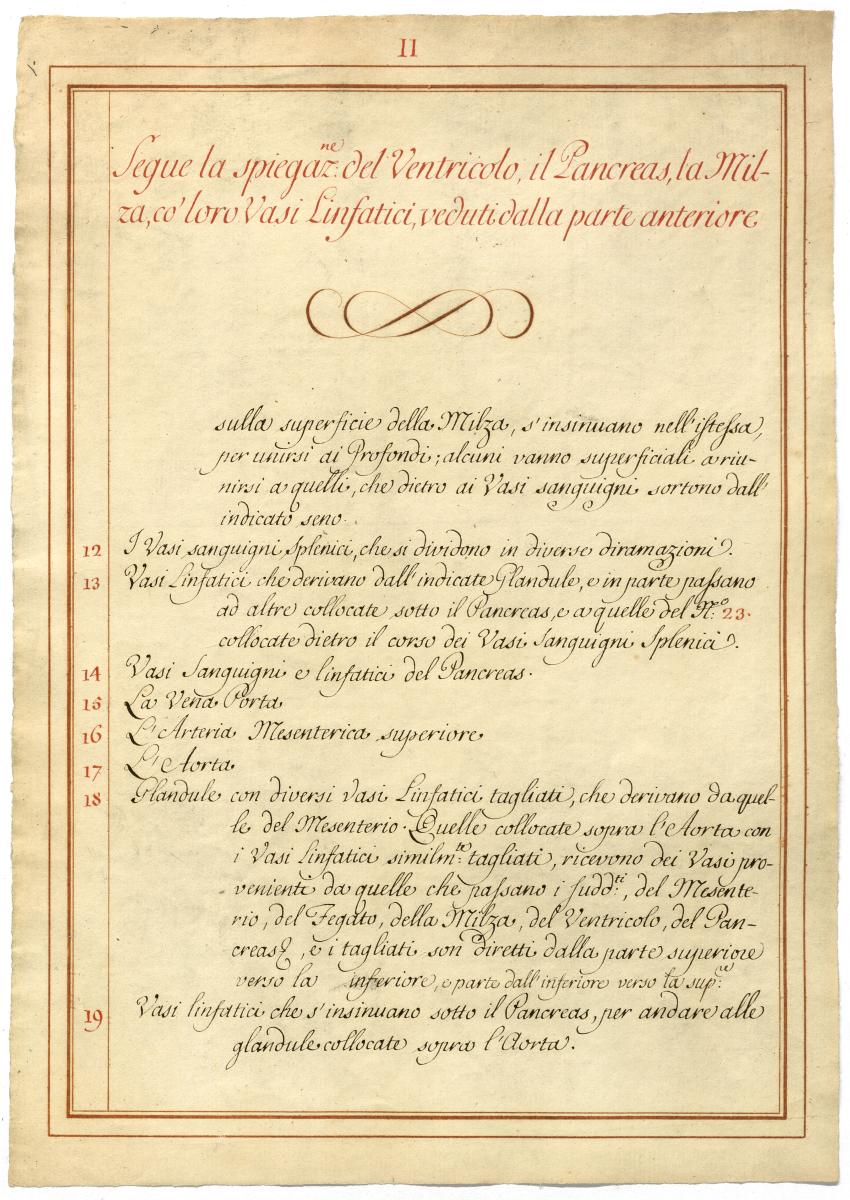 II
Segue la spiegaz.ne del Ventricolo, il Pancreas, la Mil-
za, co' loro Vasi Linfatici, veduti dalla parte anteriore
sulla superficie della Milza, s'insinuano nell'istessa,
per unirsi ai Profondi; alcuni vanno superficiali a riu-
nirsi a quelli, che dietro ai Vasi sanguigni sortono dall'
indicato seno.
12 I Vasi sanguigni Splenici, che si dividono in diverse diramazioni.
13 Vasi Linfatici che derivano dall'indicate Glandule, e in parte passano
ad altre collocate sotto il Pancreas, e a quelle del N.o 23.
collocate dietro il corso dei Vasi Sanguigni Splenici.
14 Vasi Sanguigni e linfatici del Pancreas.
15 La Vena Porta
16 L'Arteria Mesenterica superiore
17 L'Aorta
18 Glandule con diversi Vasi Linfatici tagliati, che derivano da quel-
le del Mesenterio. Quelle collocate sopra l'Aorta con
i Vasi Linfatici similm.te tagliati, ricevono dei Vasi pro-
venienti da quelle che passano i sudd.ti, del Mesente-
rio, del Fegato, della Milza, del Ventricolo, del Pan-
creas, e i tagliati son diretti dalla parte superiore
verso la inferiore, e parte dall'inferiore verso la sup.re
19 Vasi linfatici che s'insinuano sotto il Pancreas, per andare alle
glandule collocate sopra l'Aorta.